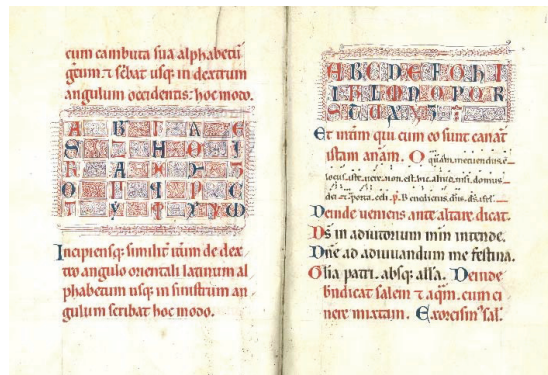 cum cambuta sua alphabetū
gᷓcum ⁊ sc̄bat usq; in dextrum
angulum occidentis: hoc modo.
A B Γ Δ E
Incipiensq; similit̄ itm̄ de dex
tro angulo orientali latinum al
phabetum usq; in sinistrum an
gulum scribat hoc modo.
A B C D E F G H I
S T U X Y Z
Et int̄im qui cum eo sunt canāt
istam anam̄. O quam metuendus ē
locus iste. uere non est hic aliud nisi domus
dei ⁊ porta celi. p̄. Benedictus dn̄s d̄s
Deinde ueniens ante altare dicat.
Ds̄ in adiutorium m̄m intende.
Dn̄e ad adiuuandum me festina.
Glia patri. absq; all̄a. Deinde
bn̄dicat salem ⁊ aq̄m. cum ci
nere mixtam. Exorcism̄ sal'.